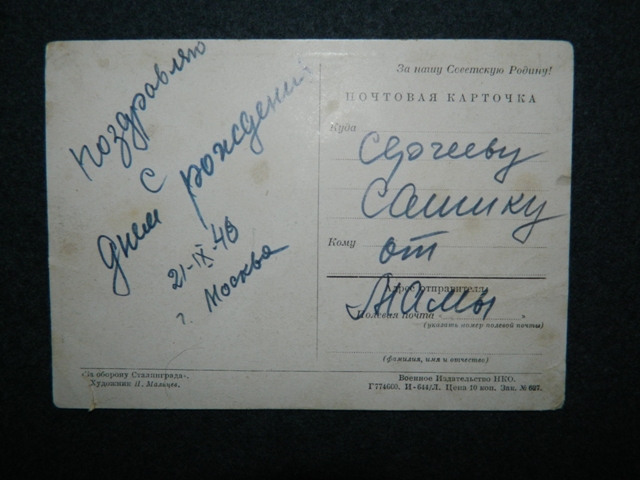 Поздравляю
с
днем рождения
21-IX-46
г. Москва
За нашу Советскую Родину!
ПОЧТОВАЯ КАРТОЧКА
Куда
Сергееву
Сашику
Кому от
Адрес отправителя
Мамы
Полевая почта
(указать номер полевой почты)
(фамилия, имя и отчество)
«За оборону Сталинграда».
Художник П. Мальцев.
Военное Издательство НКО.
Г774660. И-644/Л. Цена 10 коп. Зак. №